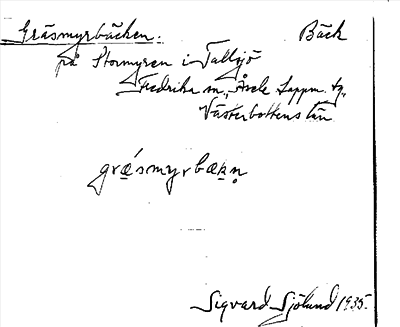 Gräsmyrbäcken. Bäck
på Stormyren i Tallsjö
Fredrika sn., Åsele Lappm. tg.,
Västerbottens län
grǽ̣smyrbæḳṇ
Sigvard Sjölund 1935.